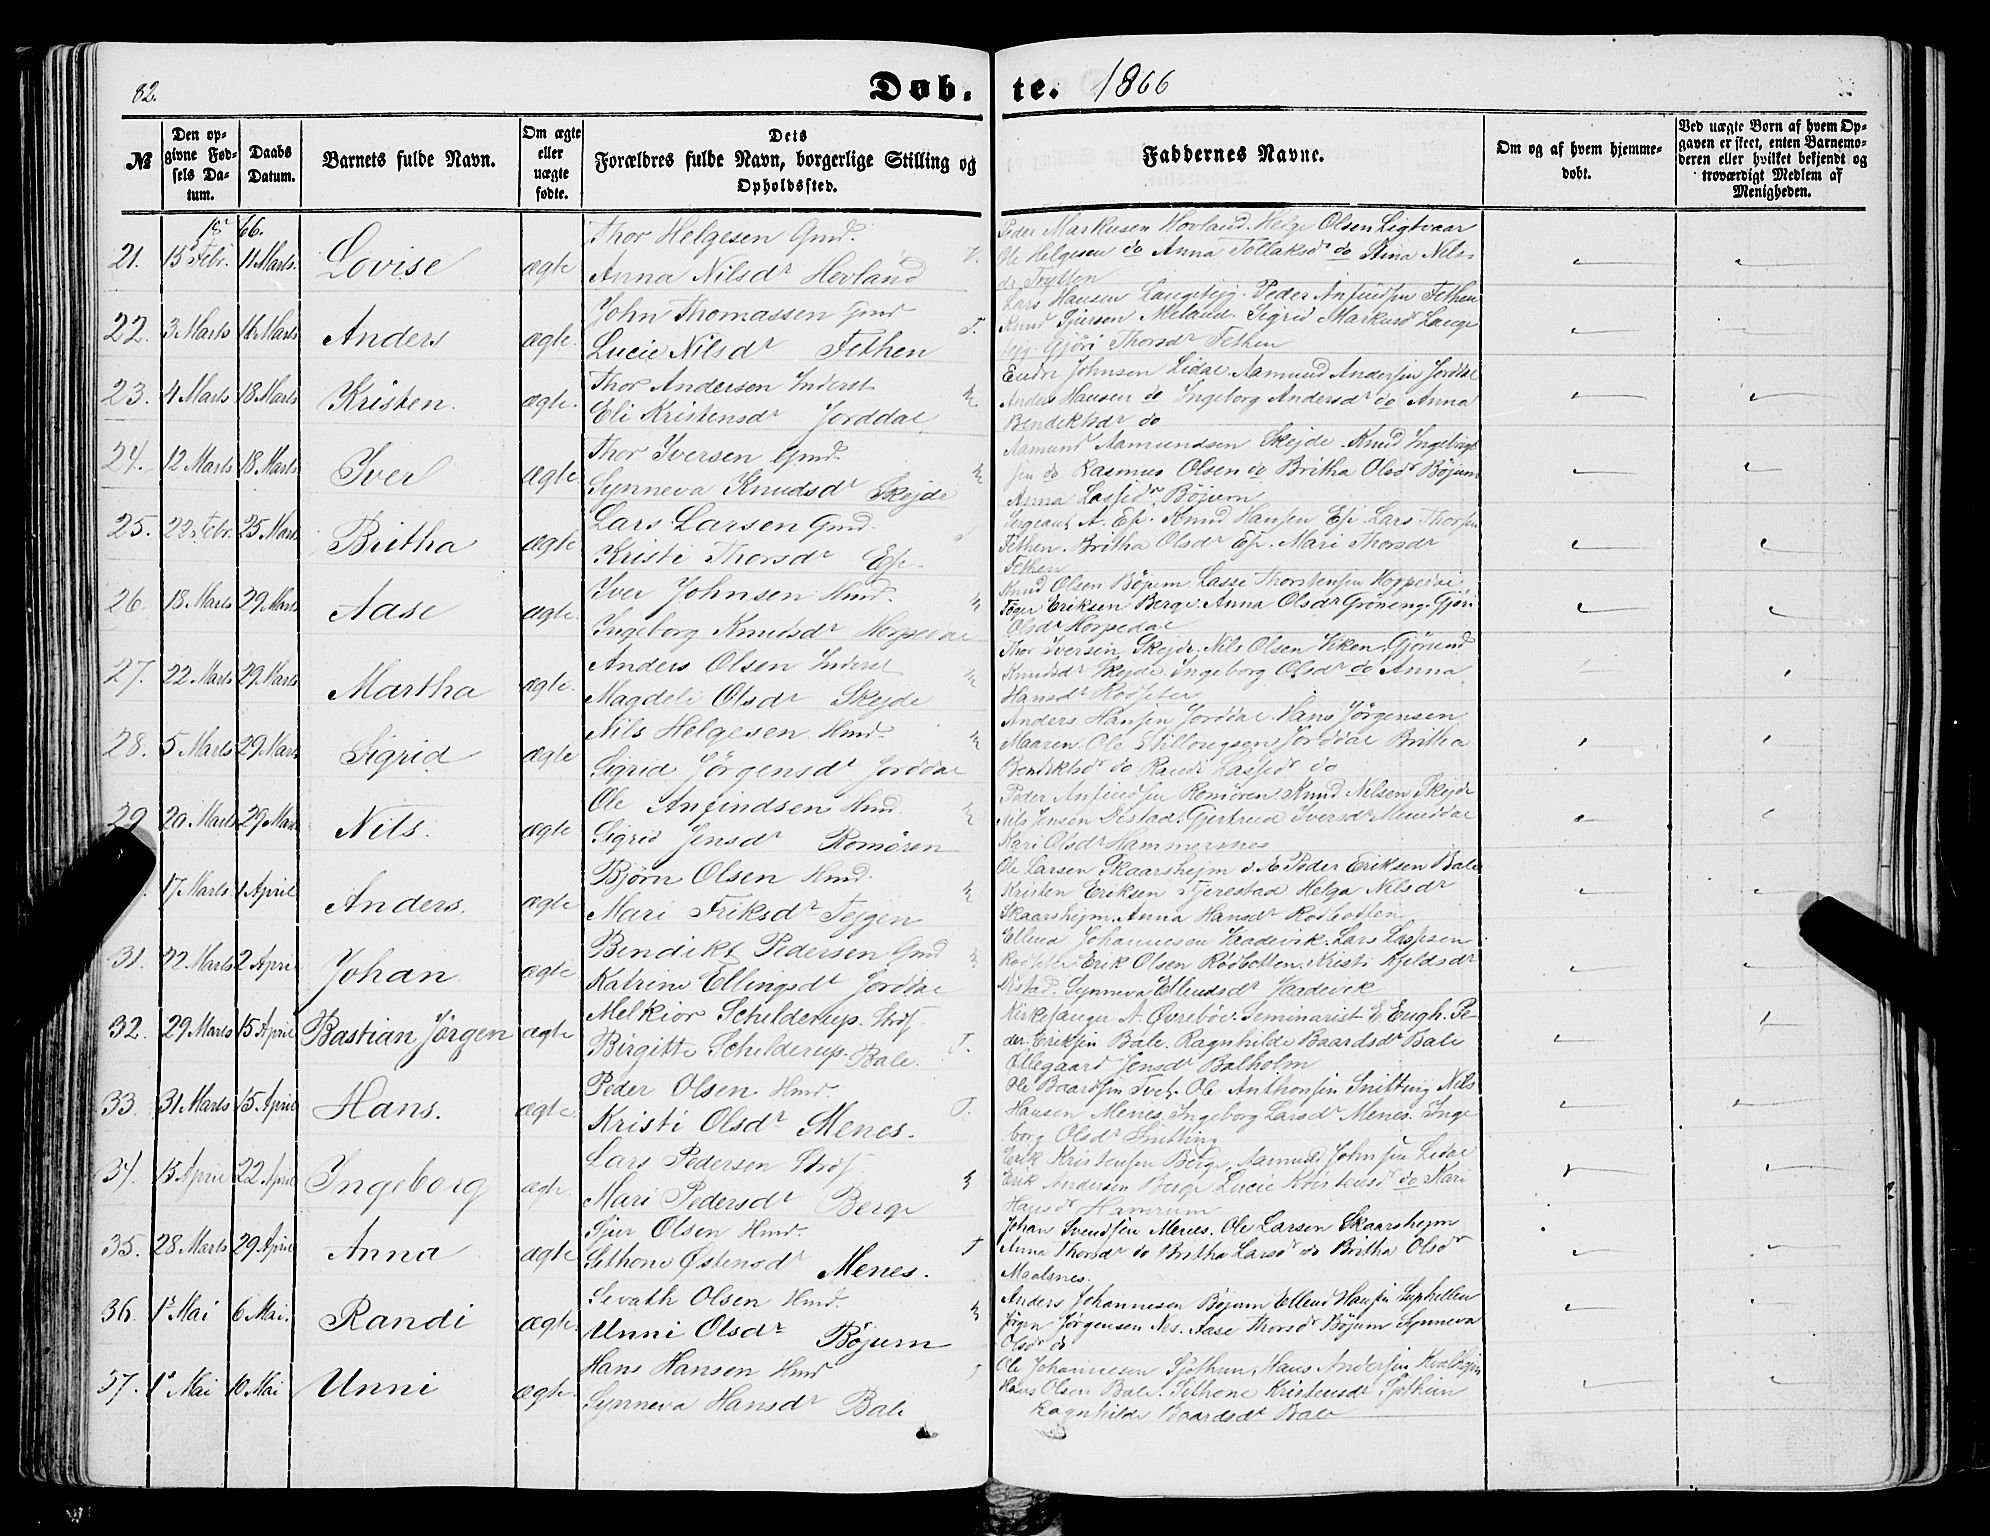 82.
Døb-te. 1866
№
Den opgivne Fødsels Datum.
Daabs Datum.
Barnets fulde Navn.
Om ægte eller uægte fødte.
Dets Forældres fulde Navn, borgerlige Stilling og Opholdssted.
Faddernes Navne.
Om og af hvem hjemmedøbt.
Ved uægte Børn af hvem Opgaven er skeet, enten Barnemoderen eller hvilket bekjendt og troværdigt Medlem af Menigheden.
1866.
21. 15 Febr. 11 Marts. Lovise ægte
Thor Helgesen Gmd.
Anna Nilsdr Hovland
Peder Markusen Hovland. Helge Olsen Ligtvaar
Ole Helgesen do Anna Tollaksdr do Stina Nils-
dr Trytten
22. 3 Marts 16 Marts Anders ægte.
John Thomassen Gmd
Lucie Nilsdr Fethen
Lars Hansen Langetejg. Peder Anfindsen Fethen
Knud Sjursen Meland. Sigrid Markusdr Lange
tejg. Gjöri Thorsdr Fethen
23. 4 Marts 18 Marts Kristen. ægte.
Thor Andersen Inderst
Eli Kristensdr Jorddal
Endre Johnsen Lidal. Aamund Andersen Jorddal
Anders Hansen do Ingeborg Andersdr do Anna
Bendiktsdr do
24. 12 Marts 18 Marts Iver ægte
Thor Iversen Gmd.
Synneva Knudsdr Skejde
Aamund Aamundsen Skejde. Knud Ingebrigt
sen do Rasmus Olsen do Britha Olsdr Böjum
Anna Lassedr Böjum
25. 22 Febr. 25 Marts Britha ægte
Lars Larsen Gmd.
Kristi Thorsdr Ese.
Sergeant A. Ese. Knud Hansen Ese. Lars Thorsen
Fethen. Britha Olsdr Ese. Mari Thorsdr
Fethen
26. 18 Marts 29 Marts Aase ægte.
Iver Johnsen Hmd.
Ingeborg Knudsdr Horpedal
Knud Olsen Böjum. Lasse Thorstensen Horpedal
Eriksen Berge. Anna Olsdr Gröneng. Gjöri
Olsdr Horpedal
27. 22 Marts 29 Marts Martha ægte.
Anders Olsen Inderst
Magdeli Olsdr Skejde
Thor Iversen Skejde. Nils Olsen Viken. Gjörend
Knudsdr Skejde. Ingeborg Olsdr do Anna
Hansdr Rodseter
28. 5 Marts 29 Marts Sigrid ægte
Nils Helgesen Hmd.
Sigrid Jörgensdr Jorddal
Anders Hansen Jorddal. Hans Jörgensen
Maaren. Ole Jorddal Britha
Bendiktsdr do Randi Lassedr do
29 20 Marts 29 Marts Nils. ægte
Ole Anfindsen Hmd
Sigrid Jensdr Romören
Peder Anfindsen Romören. Knud Nilsen Skejde
Nils Jensen Distad. Gjertrud Iversdr Mundal
Kari Olsdr Hammersnes
17 Marts 1 April Anders. ægte
Björn Olsen Hmd.
Mari Eriksdr Tejgen
Ole Larsen Skaarshejm d. Æ. Peder Eriksen Bale
Kristen Eriksen Tjerestad Helga Nilsdr
Skaarshejm. Anna Hansdr Rödbotten
31. 22 Marts 2 April Johan ægte
Bendikt Pedersen Gmd
Katrine Ellingsdr Jorddal
Ellend Johannesen Vaadevik. Lars Lassesen
Rodseter Erik Olsen Rödbotten. Kristi Kjeldsdr
Distad. Synneva Ellendsdr Vaadevik
32. 29 Marts 15 April Bastian Jörgen ægte
Melkior Schilderup. Strds.
Birgitte Schilderup. Bale.
Kirkesanger A. Övreböe. Seminarist E. Eugh. Pe
der Eriksen Bale. Ragnhilde Baardsdr Bale
Ollegaard Jensdr Balholm
33. 31 Marts 15 April Hans. ægte
Peder Olsen Hmd.
Kristi Olsdr Menes.
Ole Baardsen Tvet. Ole Anthonsen Snitting Nils
Hansen Menes. Ingeborg Larsdr Menes. Inge
borg Olsdr Snitting
34. 15 April 22 April Ingeborg ægte
Lars Pedersen Strds
Mari Pedersdr Berge
Erik Kristensen Berge. Aamund Johnsen Lidal
Erik Andersen Berge Lucie Kristensdr do Kari
Hansdr Hamrum
35. 28 Marts 29 April Anna ægte
Sjur Olsen Hmd.
Sithone Östensdr Menes.
Johan Svendsen Menes. Ole Larsen Skaarshejm
Anna Thorsdr do Britha Larsdr do Britha Olsdr
Maalsnes.
36. 1s Mai 6 Mai. Randi ægte.
Sevath Olsen Hmd.
Unni Olsdr Böjum
Anders Johannesen Böjum Ellend Hansen Suphellen
Jörgen Jörgensen Nes. Aase Thorsdr Böjum Synneva
Olsdr do
37. 1s Mai 10 Mai Unni ægte.
Hans Hansen Hmd
Synneva Hansdr Bale
Ole Johannesen Sjothun. Hans Andersen
Hans Olsen Bale. Sithone Kristensdr Sjothun
Ragnhilde Baardsdr Bale